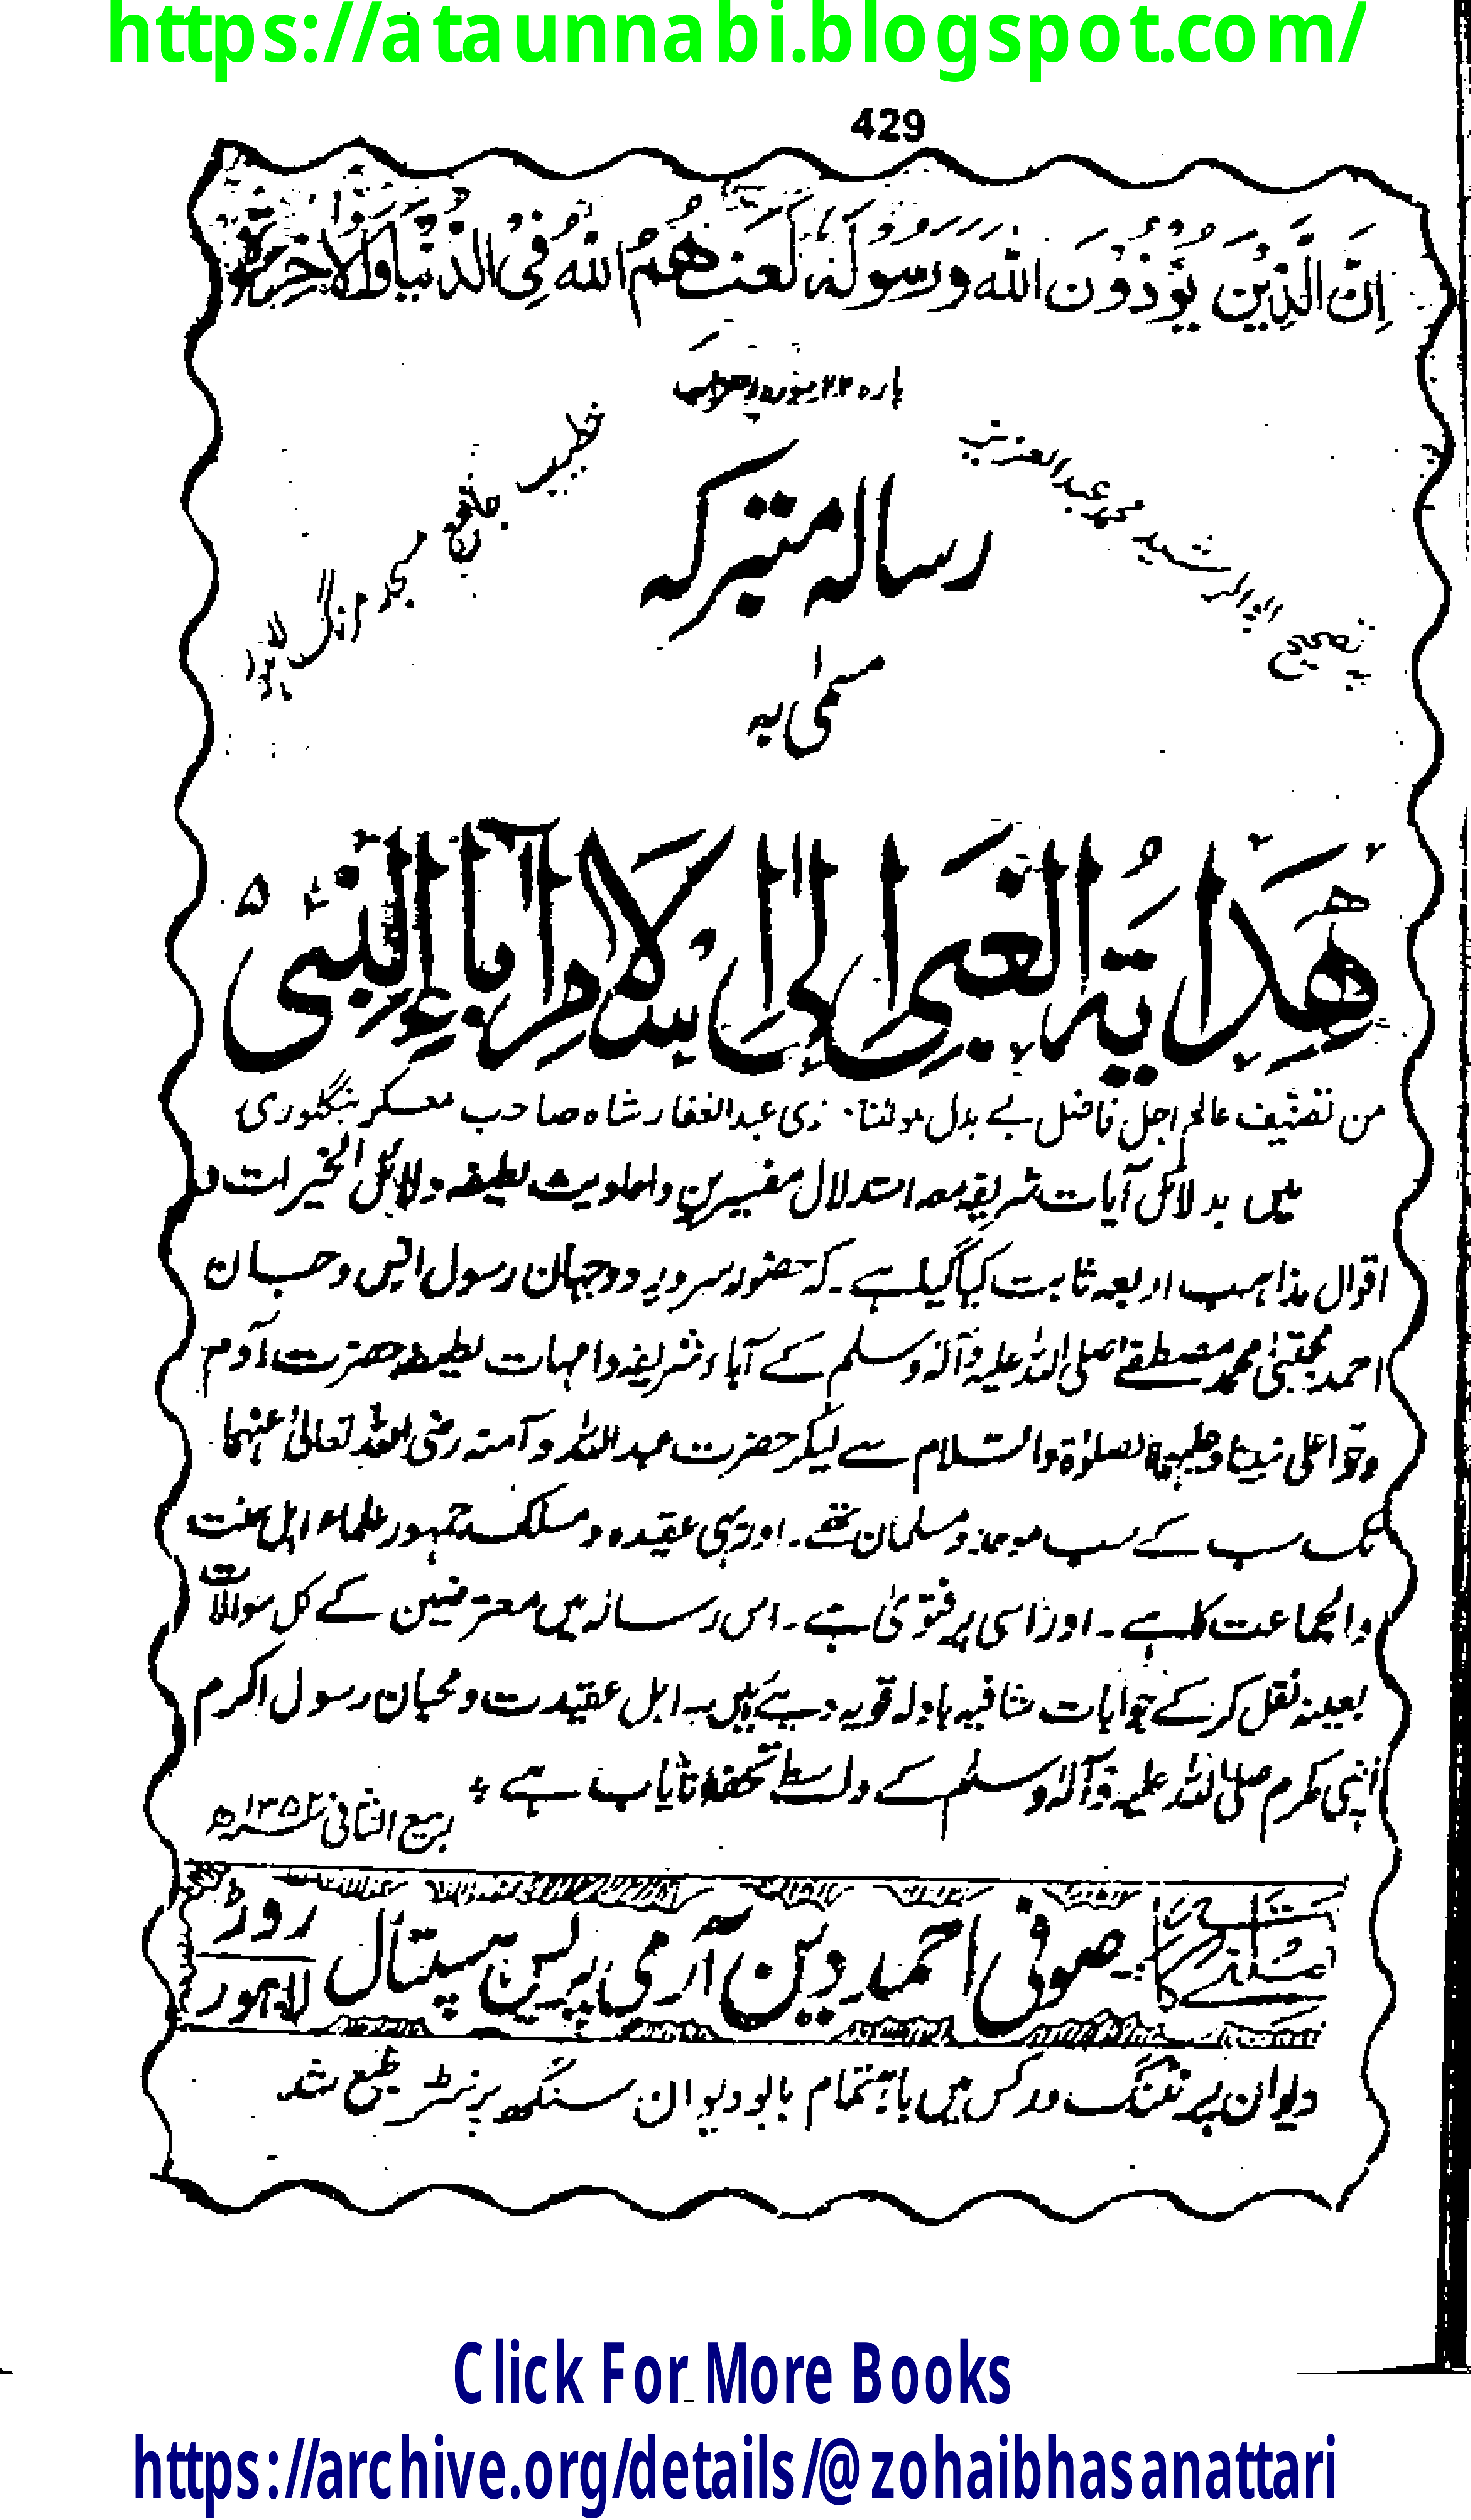 https://ataunnabi.blogspot.com/
429
اِنَّ الَّذِيْنَ يُؤْذُوْنَ اللّٰهَ وَرَسُوْلَهٗ لَعَنَهُمُ اللّٰهُ فِى الدُّنْيَا وَالْاٰخِرَةِ
پارہ ۲۲ سورہ احزاب
بتصحیح ابو الرشید محمد عبدالعزیز
خطیب جامع مسجد مزنگ لاہور
رسالہ متبرکہ
مسمیٰ بہ
هِدَايَةُ الْغَبِى اِلٰى اِسْلَامِ اٰبَاءِ النَّبِى
من تصنیف عالم اجل فاضل بے بدل مولٰنا عبدالغفار شاہ صاحب معسکر بنگلوری
میں بدلائل آیات شریفہ معہ استدلال مفسرین و احادیث لطیفہ و دلائل الخیرات و
اقوال مذاہب اربعہ ثابت کیا گیا ہے ۔ کہ حضور سرور دوجہان رسول انس و جان
احمد مجتبیٰ محمد مصطفےٰ صلی اللہ علیہ وآلہ وسلم کے آباء شریفہ و امہات لطیفہ حضرت آدم
و حوا علی نبینا وعلیہما الصلوٰة والسلام سے لیکر حضرت عبداللہ و آمنہ رضی اللہ تعالیٰ عنہما
تک سب کے سب موحد و مسلمان تھے ۔ اور یہی عقیدہ و مسلک جمہور علماء اہل سنت
والجماعت کا ہے ۔ اور اسی پر فتویٰ ہے ۔ اس رسالہ میں معترضین کے کل سوالات
بعینہ نقل کر کے جوابات شافیہ بادلہ قویہ دیئے ہیں ۔ اہل عقیدت و محبان رسول اکرم
نبی مکرم صلی اللہ علیہ وآلہ وسلم کے واسطے تحفہ نایاب ہے
ربیع الثانی ۱۳۵۲ھ
ملنے کا پتہ صوفی احمد دین آرمی پریس ہسپتال روڈ لاہور
دیوان پرنٹنگ ورکس میں باہتمام بابو دیوان سنگھ پرنٹر طبع شد
Click For More Books
https://archive.org/details/@zohaibhasanattari